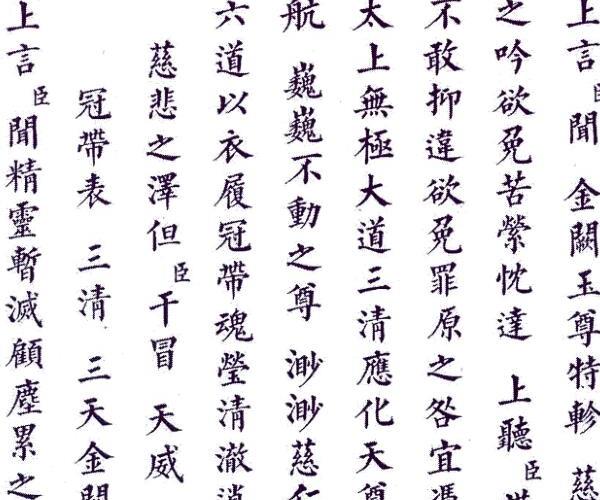 上言 臣聞 金闕玉尊特軫 慈
之吟欲免苦縈忱達 上聽 臣
不敢抑違欲免罪原之咎宜
太上無極大道三清應化天尊
航 巍巍不動之尊 渺渺慈仁
六道以衣履冠帶魂瑩清澈
慈悲之澤但臣干冒 天威
冠帶表 三清 三天金
上言 臣聞精靈暫滅顧塵累之